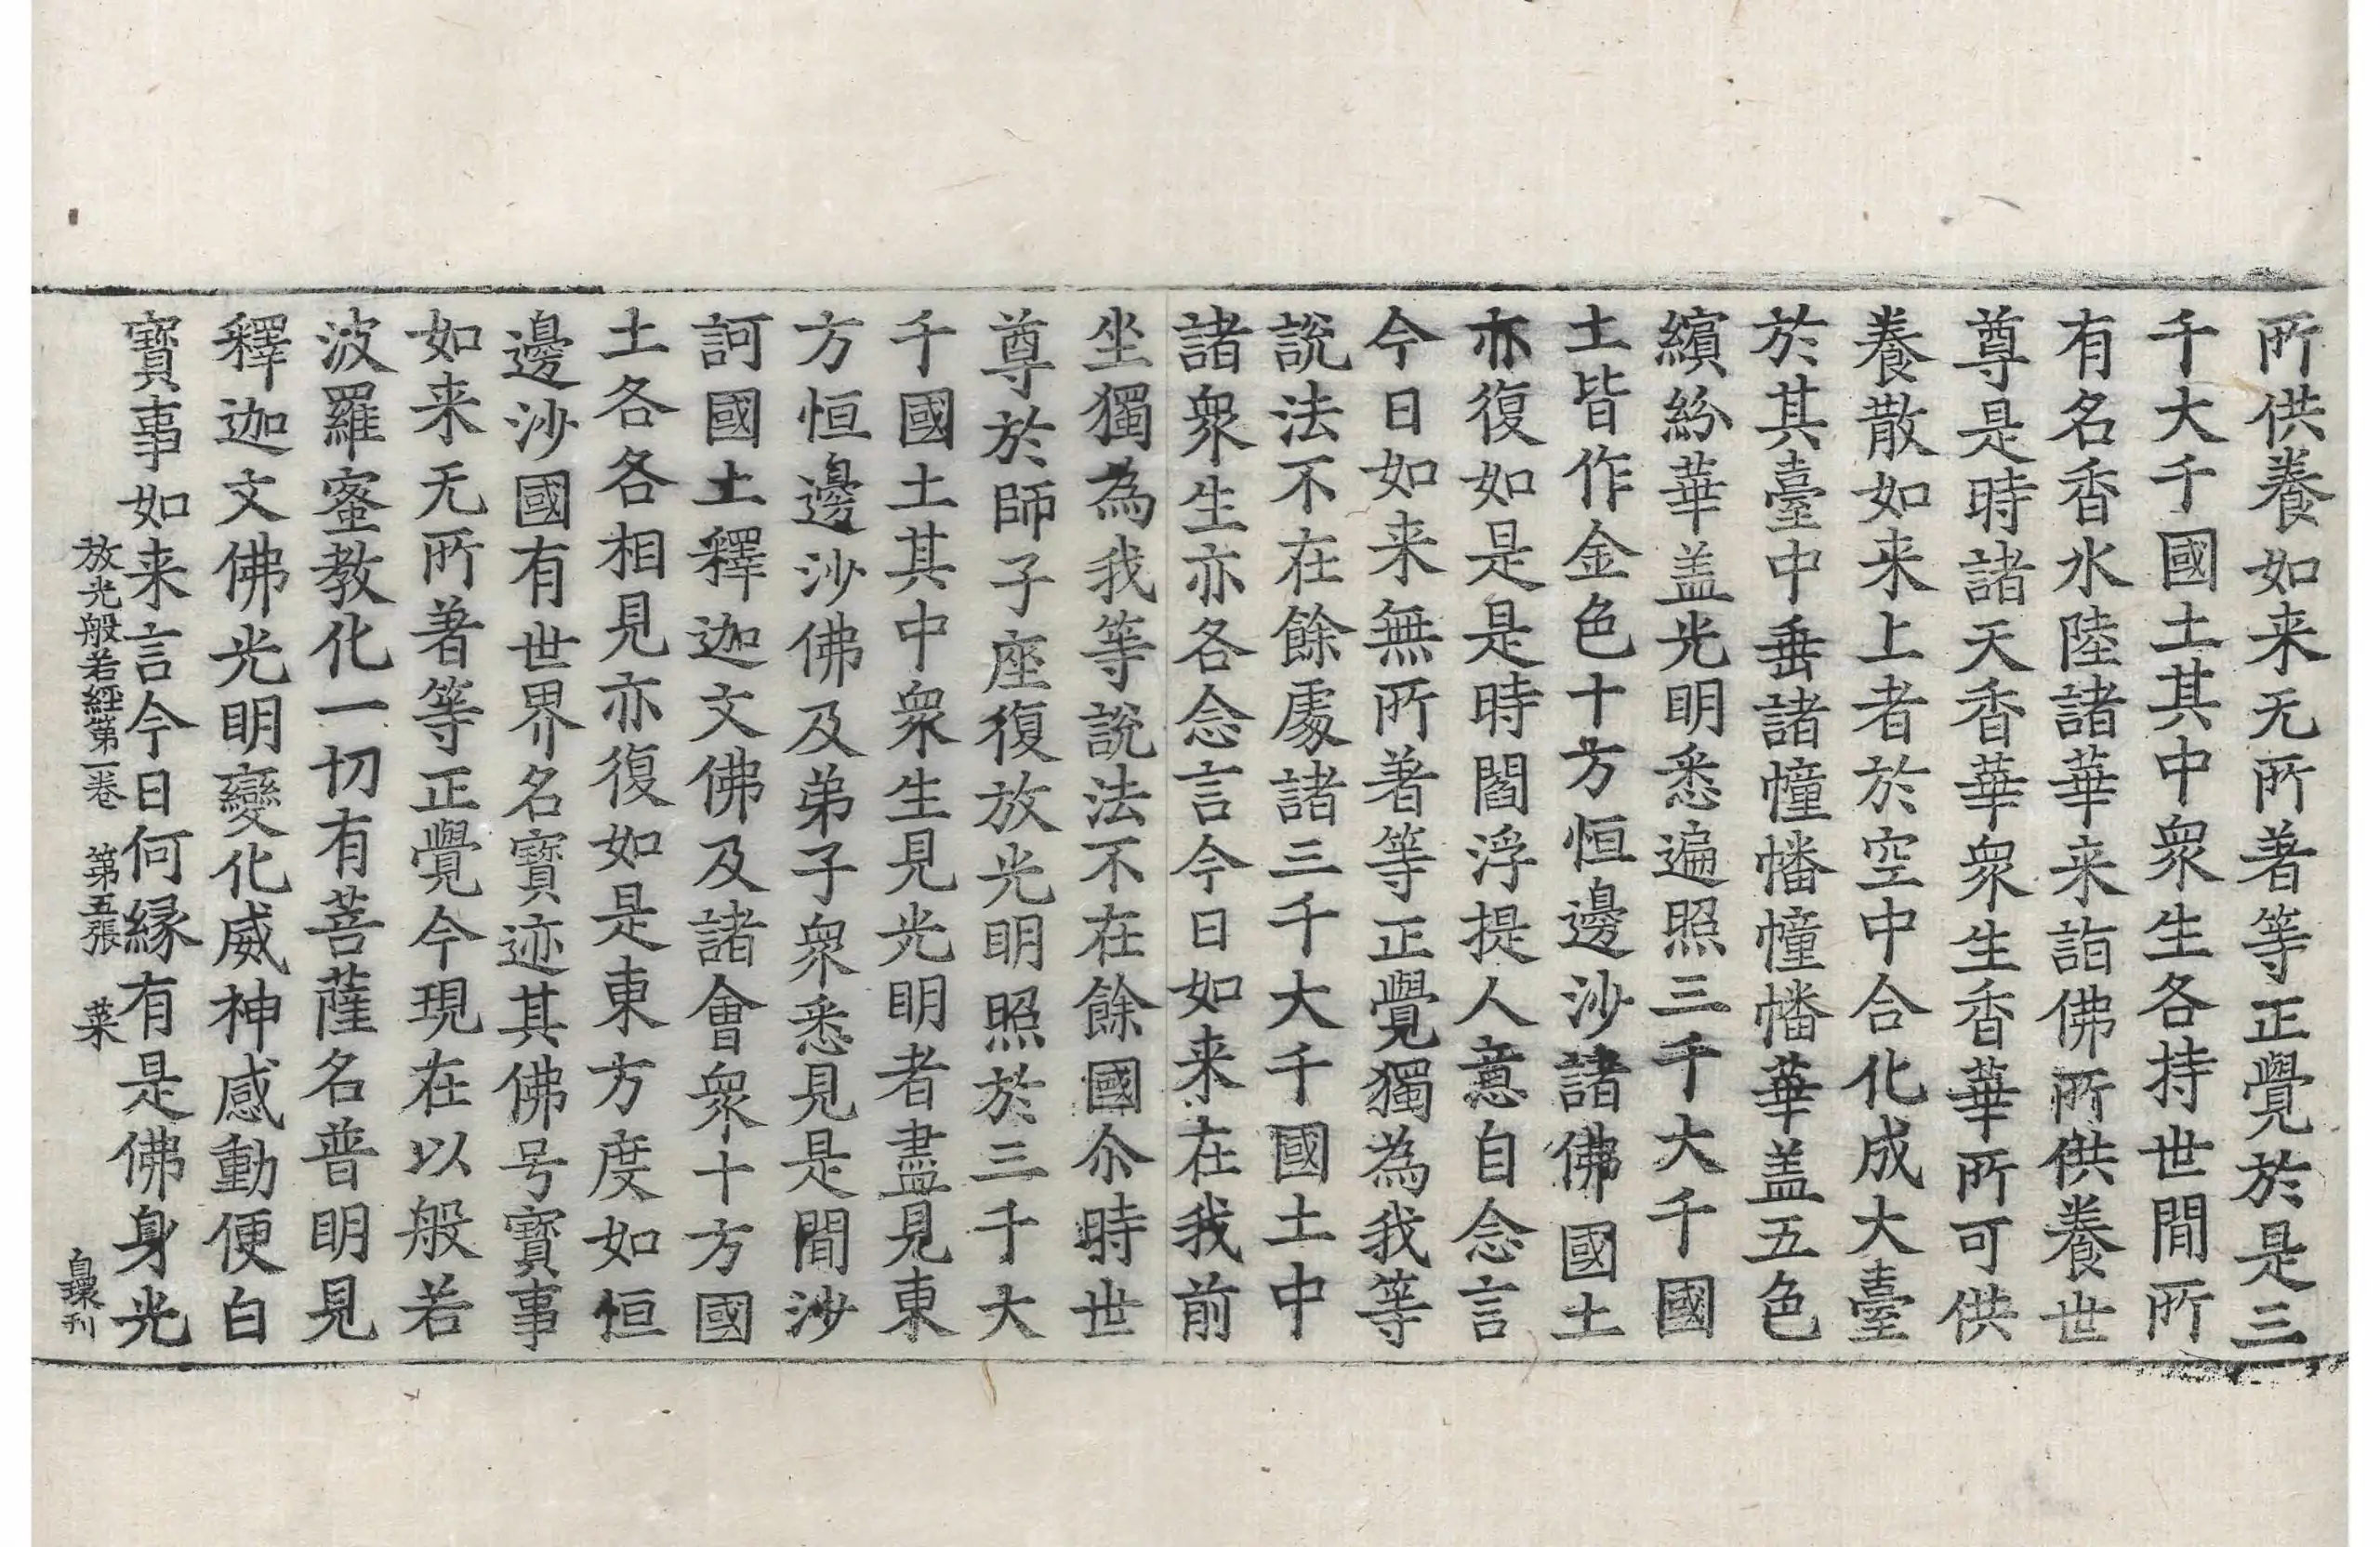 所供養如来无所著等正覺於是三
千大千國土其中衆生各持世間所
有名香水陸諸華来詣佛所供養世
尊是時諸天香華衆生香華所可供
養散如来上者於空中合化成大臺
於其臺中垂諸幢幡幢幡華盖五色
繽紛華盖光明悉遍照三千大千國
土皆作金色十方恒邊沙諸佛國土
亦復如是是時閻浮提人意自念言
今日如来無所著等正覺獨為我等
說法不在餘處諸三千大千國土中
諸衆生亦各念言今日如来在我前
坐獨為我等說法不在餘國尒時世
尊於師子座復放光明照於三千大
千國土其中衆生見光明者盡見東
方恒邊沙佛及弟子衆悉見是間沙
訶國土釋迦文佛及諸會衆十方國
土各各相見亦復如是東方度如恒
邊沙國有世界名寶迹其佛号寶事
如来无所著等正覺今現在以般若
波羅蜜教化一切有菩薩名普明見
釋迦文佛光明變化威神感動便白
寶事如来言今日何緣有是佛身光
放光般若經第一卷 第五張 菜 刊